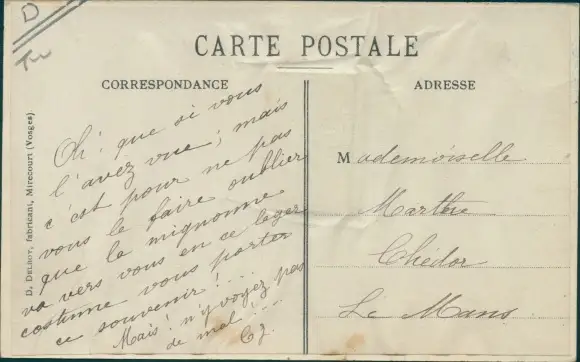 D
CARTE POSTALE
CORRESPONDANCE
Oh! que si vous
l'avez vue; mais
c'est pour ne pas
vous le faire oublier
que la mignonne
va vers vous en ce léger
costume vous porter
ce souvenir!...
Mais! n'y voyez pas
de mal!...
ADRESSE
Mademoiselle
Marthe
Chédor
Le Mans
D. DELBOY, fabricant, Mirecourt (Vosges)